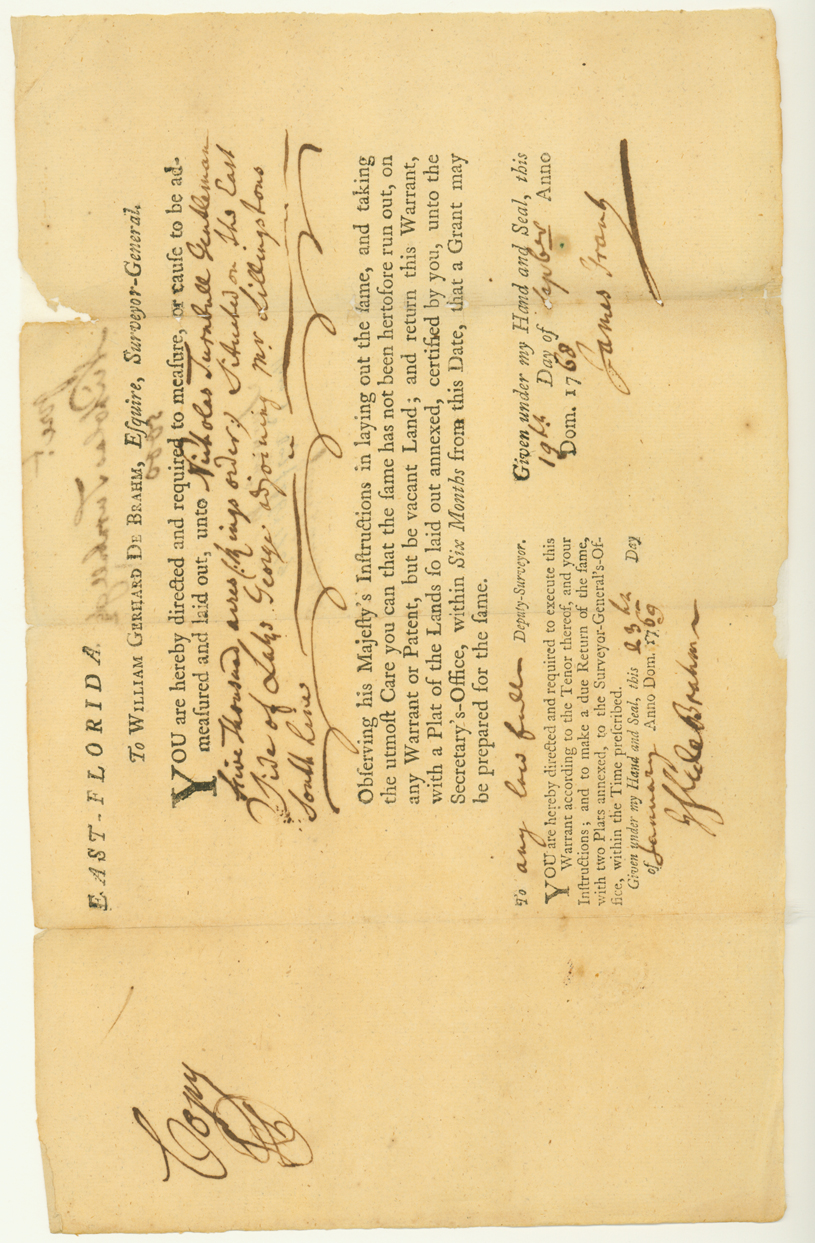 Copy
EAST-FLORIDA.
To WILLIAM GERHARD DE BRAHM, Eſquire, Surveyor-General.
YOU are hereby directed and required to meaſure, or cauſe to be ad-
meaſured and laid out, unto Nicholas Turnbull Gentleman
five thousand acres (Kings order) Situated on the East
Side of Lake George adjoining Mr. Lillingstons
South Line
Obſerving his Majeſty's Inſtructions in laying out the ſame, and taking
the utmoſt Care you can that the ſame has not been hertofore run out, on
any Warrant or Patent, but be vacant Land; and return this Warrant,
with a Plat of the Lands ſo laid out annexed, certified by you, unto the
Secretary's-Office, within Six Months from this Date, that a Grant may
be prepared for the ſame.
Given under my Hand and Seal, this
19th Day of Sepber Anno
Dom. 1768
James Grant
To any lawfull Deputy-Surveyor.
YOU are hereby directed and required to execute this
Warrant according to the Tenor thereof, and your
Inſtructions; and to make a due Return of the ſame,
with two Plats annexed, to the Surveyor-General's-Of-
fice, within the Time preſcribed.
Given under my Hand and Seal, this 23th Day
of January Anno Dom. 1769
de Brahm